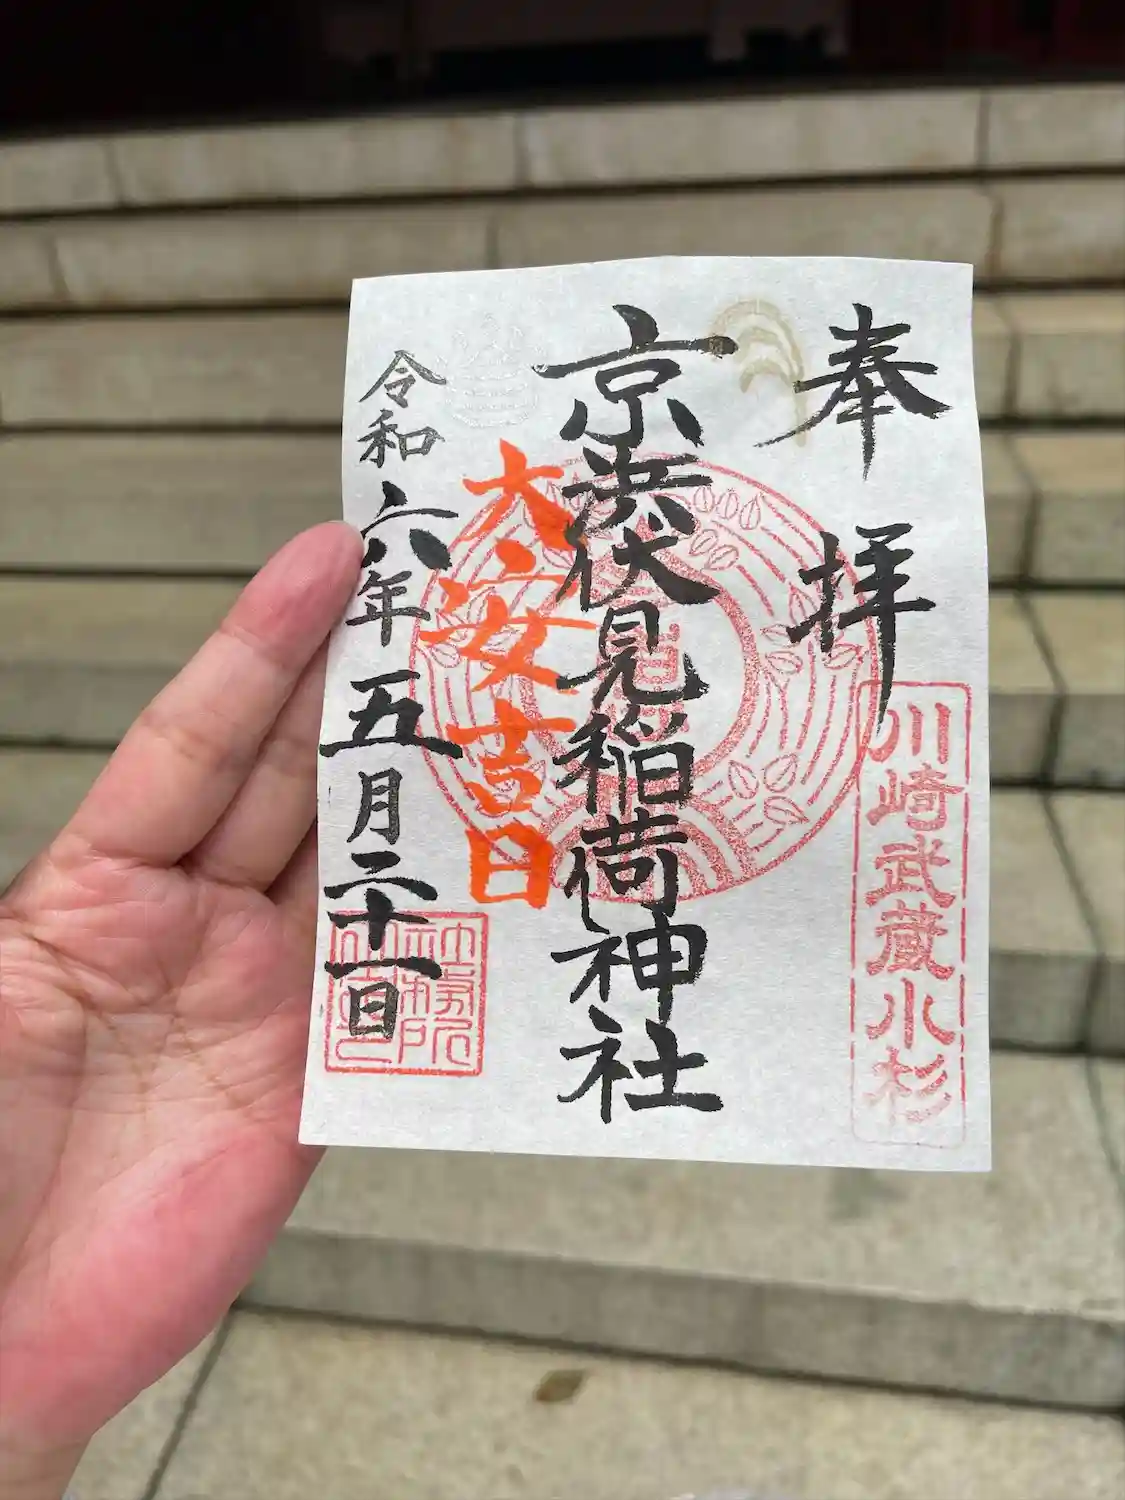 奉拝
川崎武蔵小杉
京浜伏見稲荷神社
大安吉日
令和六年五月二十一日
社務所